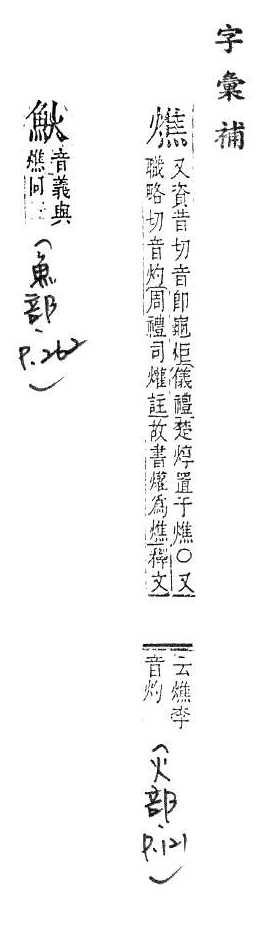 字彙補
燋
又資昔切音卽龜炬儀禮楚焞置于燋○又
職略切音灼周禮司爟註故書爟爲燋釋文
云燋李
音灼
(火部, P.121)
䲴
音義與
燋同
(魚部, P.262)